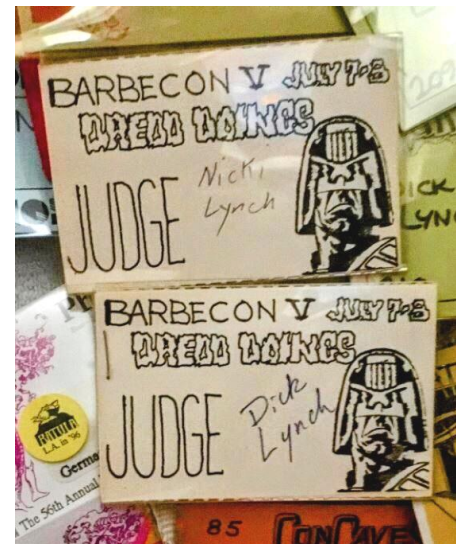 BARBECON V JULY 7-8
DREDD DOINGS
JUDGE
Nicki
Lynch
209
DICK
LYN
BARBECON V JULY 7-8
DREDD DOINGS
JUDGE
Dick
Lynch
L.A. in '96
Germa
The 56th Annual
85 CONCAVE